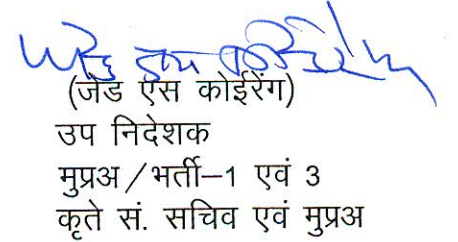 (जेड एस कोईरेंग)
उप निदेशक
मुप्रअ/भर्ती–1 एवं 3
कृते सं. सचिव एवं मुप्रअ